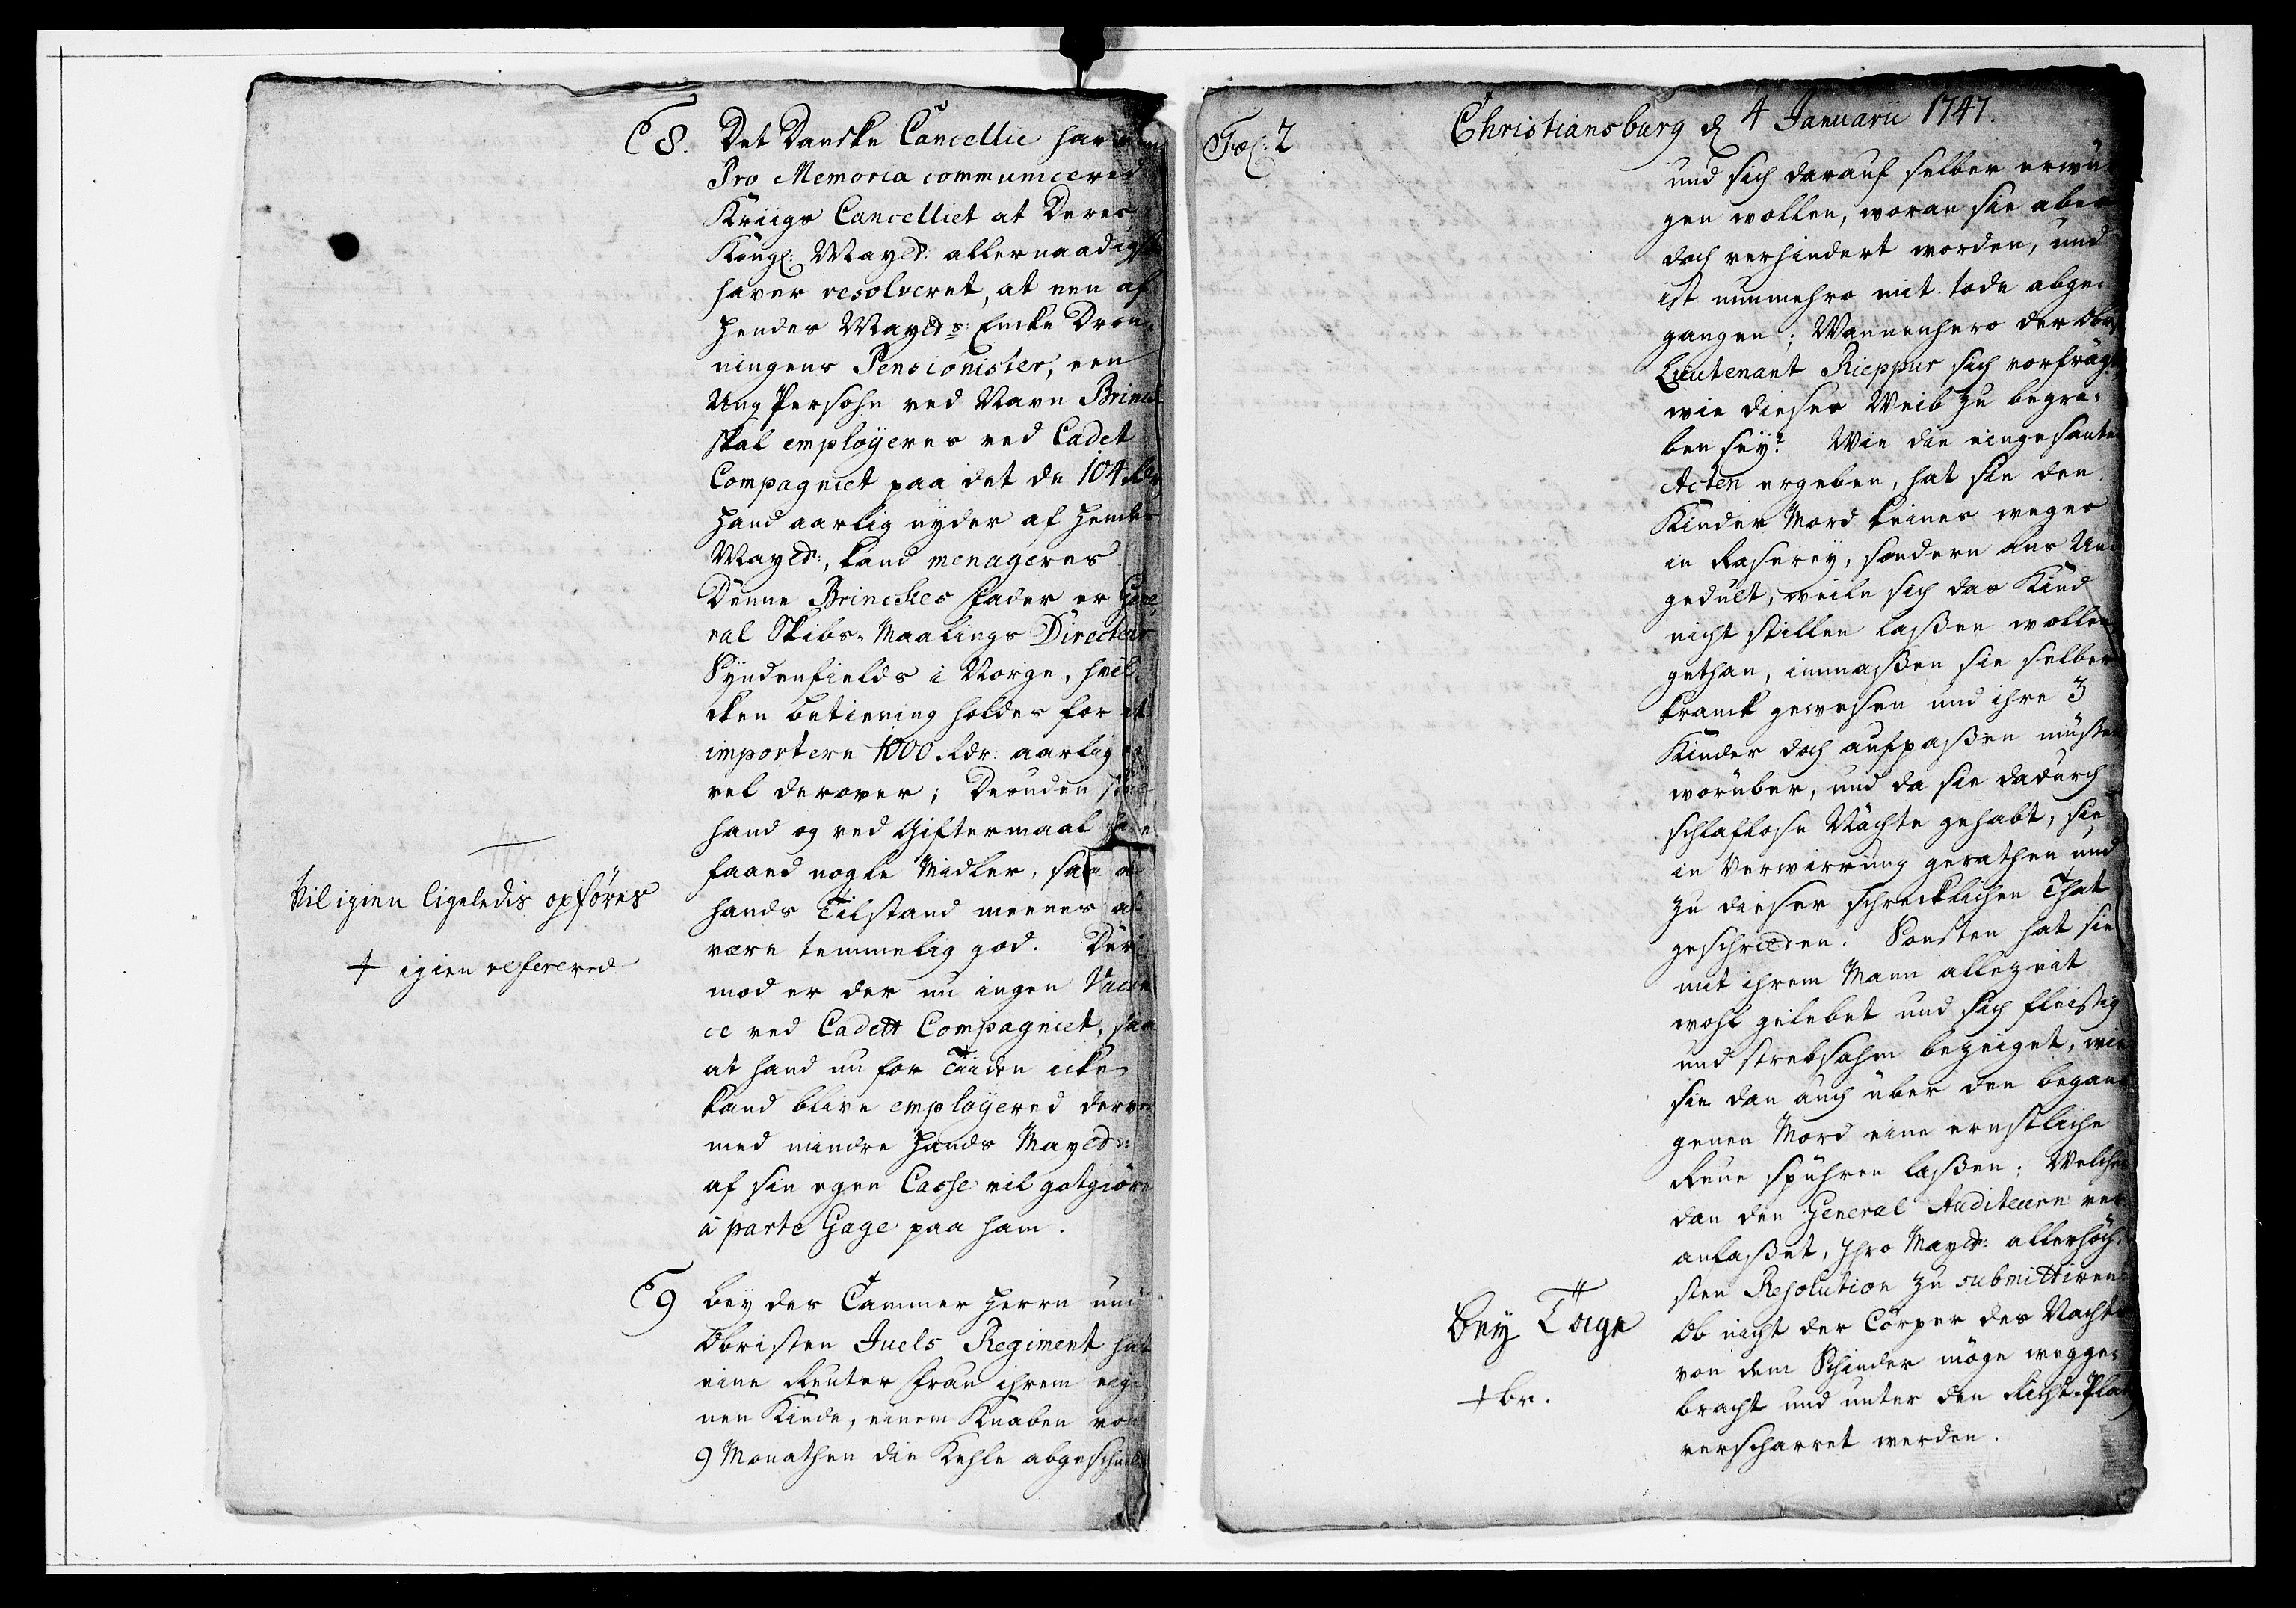 8. Det Danske Cancellie har
Pro Memoria communicered
Kriigs Cancelliet at Deres
Kongl: Mayts: allernaadigst
haver resolveret, at een af
Hendes Mayts: Encke Dron-
ningens Pensionister, een
Ung Persohn ved Navn Brinck
skal employeres ved Cadet
Compagniet paa det de 104 Rdr
Hand aarlig nyder af Hendes
Mayts:, kand menageres
Denne Brinckes Fader er Gene
ral Skibs-Maalings Directeur
Syndenfields i Norge, hvil-
cken betiening holdes for at
importere 1000 Rdr: aarlig og
vel derover; Desuden
hand og ved Giftermaal
faaed nogle Midler, saa at
hands Tilstand meenes at
være temmelig god. Der-
mod er der nu ingen Vacan
ce ved Cadett Compagniet, saa
at hand nu for Tiiden icke
kand blive employered derved
med mindre Hands Mayts:
af sin egen Casse vil gotgiøre
à parte Gage paa ham.
Vil igien ligeledis opføres
+ igien referered
9 Bey des Cammer Herrn und
Obristen Juels Regiment hat
eine Reuter Frau ihrem eige
nen Kinde, einem Knaben von
9 Monathen die Kehle abgeschnidt
Fol: 2
Christiansburg d 4 Januarii 1747.
und sich darauf selber erwür
gen wollen, woran sie aber
doch verhindert worden, und
ist nunmehro mit tode abge-
gangen; Wannenhero der Obr
Lieutenant Rieppur sich vorfrägt
wie dieses Weib zu begra-
ben sey? Wie die eingesante
Acten ergeben, hat sie den
Kinder Mord keines weges
in Raserey, sondern aus Un
gedult, weiln sich das Kind
nicht stillen laßen wollen
gethan, inmaßen sie selber
kranck gewesen und ihre 3
Kinder doch aufpaßen müßen
worüber, und da sie dadurch
schlaflose Nächte gehabt, sie
in Verwirrung gerathen und
zu dieser schrecklichen That
geschrieden. Sonsten hat sie
mit ihrem Mann allezeit
wohl gelebet und sich fleißig
und strebsahm bezeiget, wie
sie dan auch über den began
genen Mord eine ernstliche
Reue spühren laßen; Welches
dan den General Auditeuren ver
anlaßet, Ihro Mayts: allerhöch-
sten Resolution zu submittiren:
Ob nicht der Cörper des Nachts
von dem Schinder möge wegge-
bracht und unter den Richt-Platz
verscharret werden.
Bey Tage
+ br.